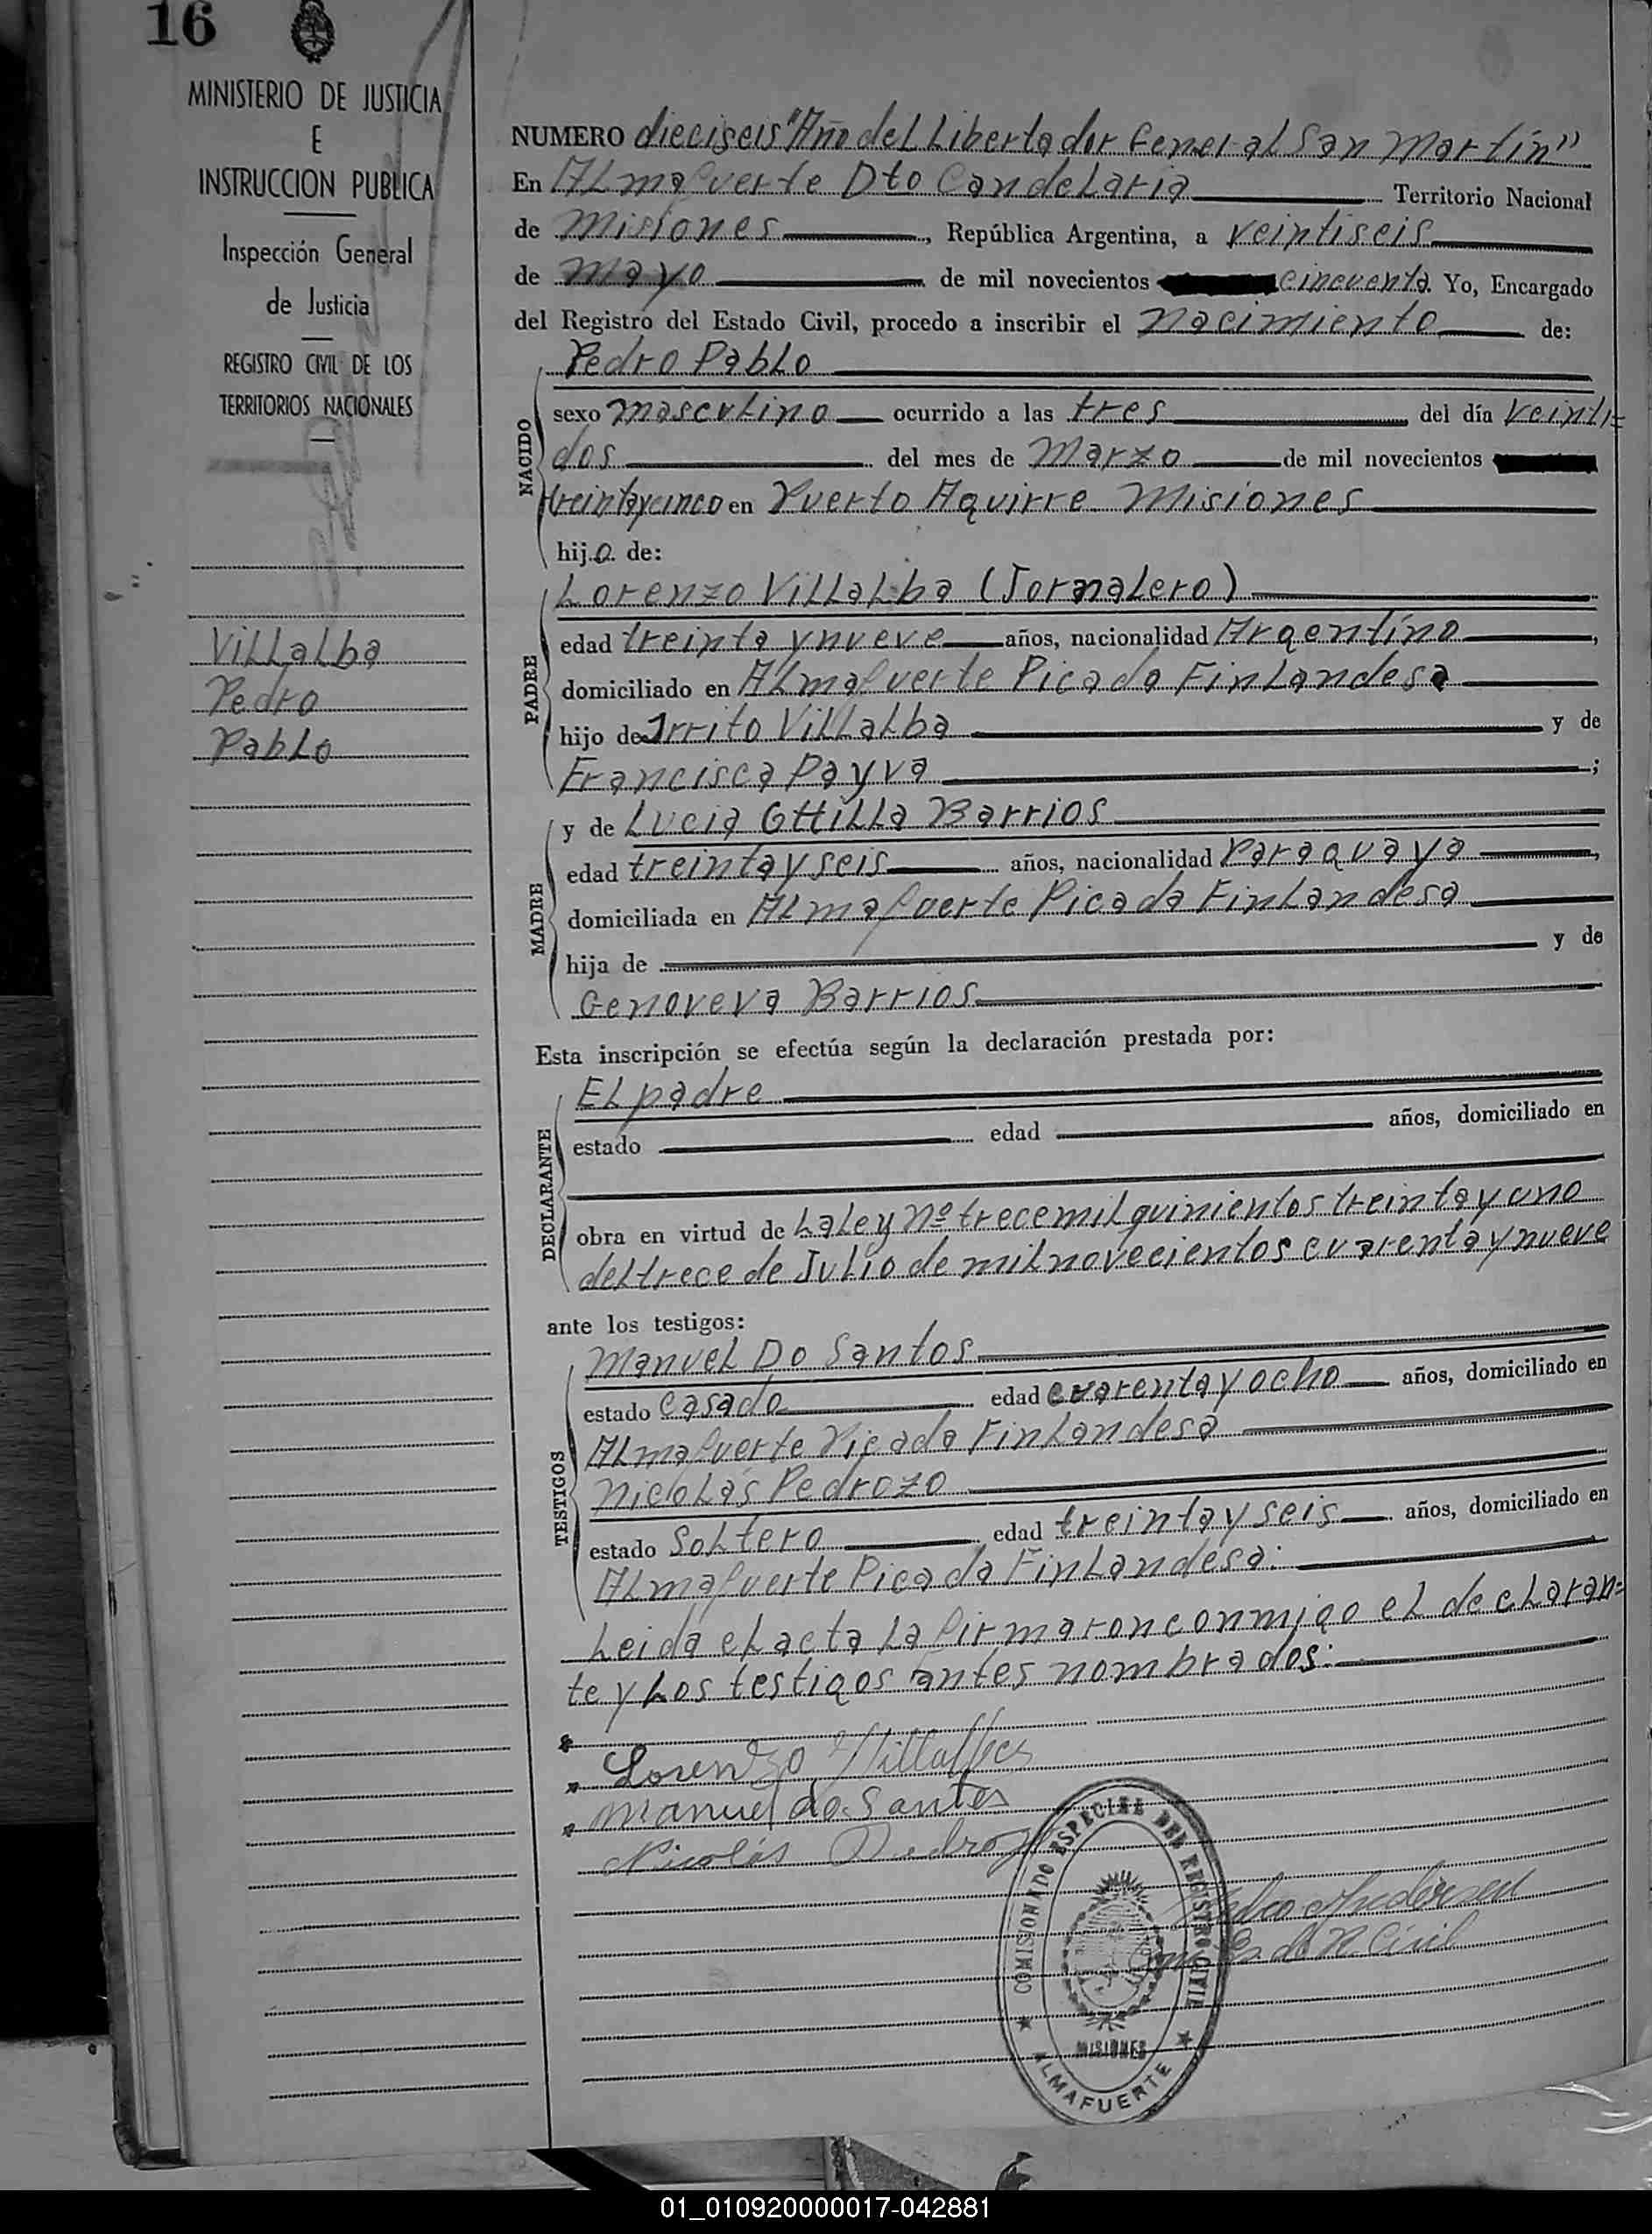 16
MINISTERIO DE JUSTICIA
E
INSTRUCCION PUBLICA
Inspección General
de Justicia
REGISTRO CIVIL DE LOS
TERRITORIOS NACIONALES
Villalba
Pedro
Pablo
NUMERO dieciseis "Año del Libertador General San Martín"
En Almafuerte Dto Candelaria Territorio Nacional
de Misiones, República Argentina, a veintiseis
de Mayo de mil novecientos cincuenta Yo, Encargado
del Registro del Estado Civil, procedo a inscribir el Nacimiento de:
NACIDO
Pedro Pablo
sexo masculino ocurrido a las tres del día veinti=
dos del mes de Marzo de mil novecientos
treintaycinco en Puerto Aguirre Misiones
hijo de:
PADRE
Lorenzo Villalba (Jornalero)
edad treinta y nueve años, nacionalidad Argentino,
domiciliado en Almafuerte Picada Finlandesa
hijo de Villalba y de
Francisca Payva;
MADRE
y de Lucia Barrios
edad treinta y seis años, nacionalidad Paraguaya,
domiciliada en Almafuerte Picada Finlandesa
hija de y de
Genoveva Barrios
Esta inscripción se efectúa según la declaración prestada por:
DECLARANTE
El padre
estado edad años, domiciliado en
obra en virtud de la ley nº trece mil quinientos treinta y uno
del trece de Julio de mil novecientos cuarenta y nueve
ante los testigos:
TESTIGOS
Manuel Do Santos
estado casado edad cuarenta y ocho años, domiciliado en
Almafuerte Picada Finlandesa
Nicolás Pedrozo
estado soltero edad treinta y seis años, domiciliado en
Almafuerte Picada Finlandesa:
Leida el acta la firmaron conmigo el declaran=
te y los testigos antes nombrados:
Lorenzo Villalba
Manuel do Santos
Nicolás Pedrozo
COMISIONADO ESPECIAL DEL REGISTRO CIVIL
MISIONES
ALMAFUERTE
R. Civil
01_010920000017-042881